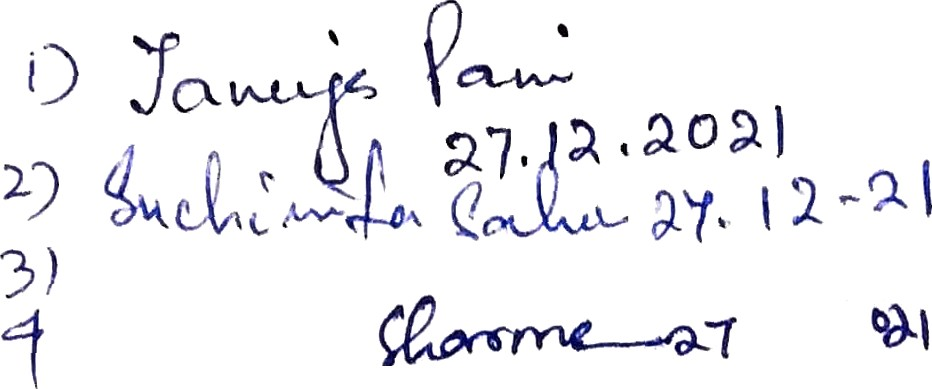 1) Tanuja Pani
27.12.2021
2) Suchismita Sahu 27.12-21
3)
4 Sharma 27 21